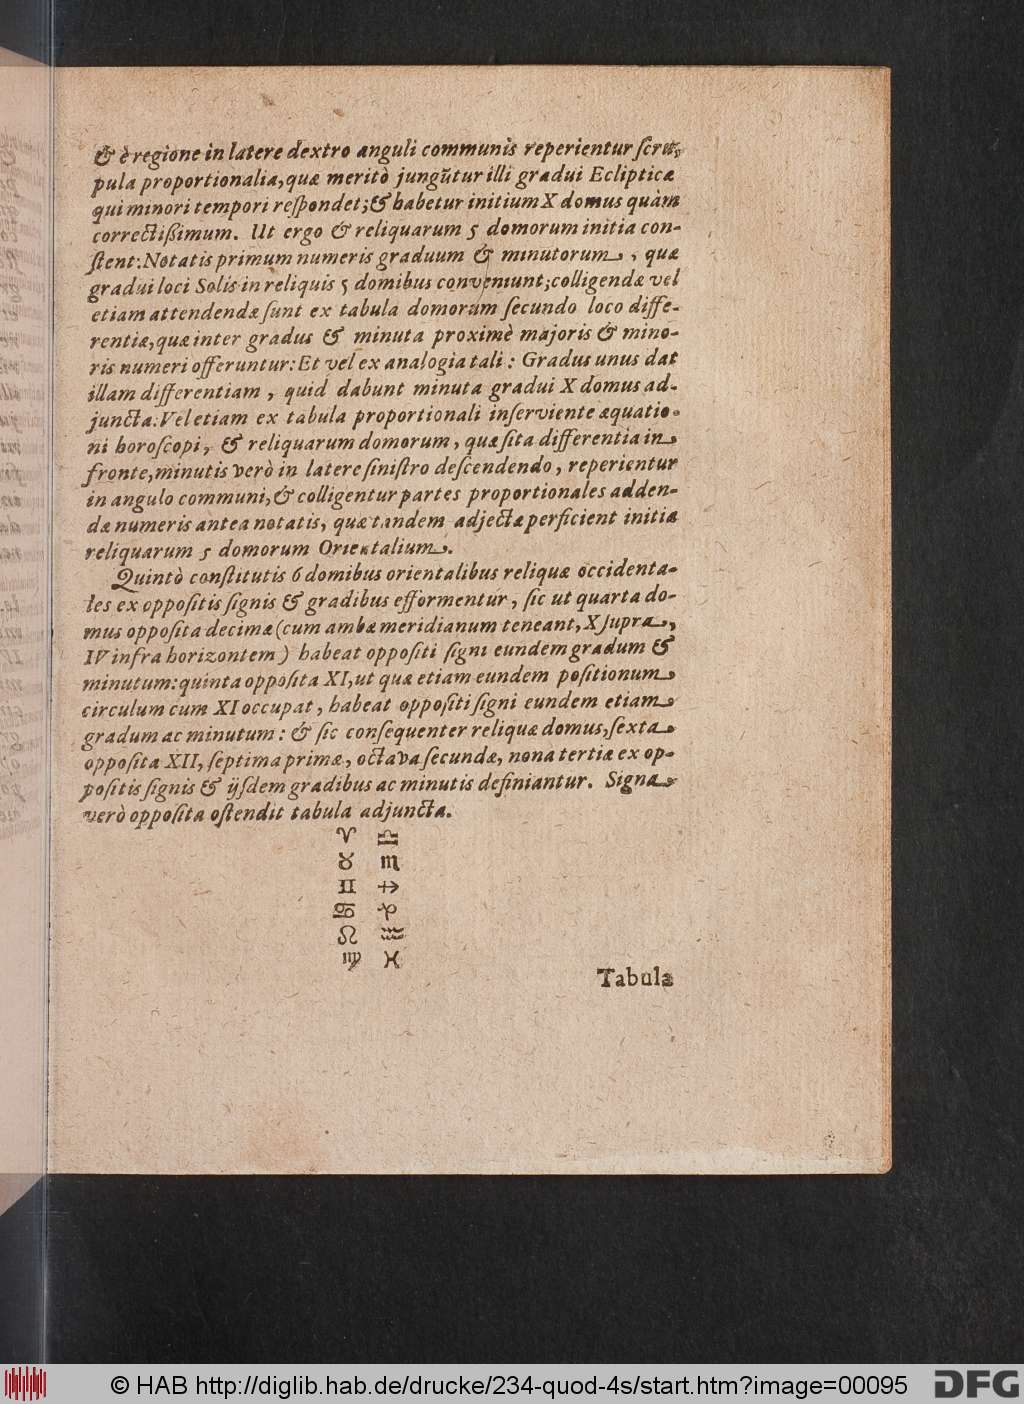 & è regione in latere dextro anguli communis reperientur scru-
pula proportionalia, quæ meritò jungūtur illi gradui Eclipticæ
qui minori tempori respondet; & habetur initium X domus quàm
correctißimum. Ut ergo & reliquarum 5 domorum initia con-
stent: Notatis primum numeris graduum & minutorum, quæ
gradui loci Solis in reliquis 5 domibus conveniunt; colligendæ vel
etiam attendendæ sunt ex tabula domorum secundo loco diffe-
rentiæ, quæ inter gradus & minuta proximè majoris & mino-
ris numeri offeruntur: Et vel ex analogia tali: Gradus unus dat
illam differentiam, quid dabunt minuta gradui X domus ad-
juncta: Vel etiam ex tabula proportionali inserviente æquatio-
ni horoscopi, & reliquarum domorum, quæsita differentia in
fronte, minutis verò in latere sinistro descendendo, reperientur
in angulo communi, & colligentur partes proportionales adden-
dæ numeris antea notatis, quæ tandem adjectæ perficient initia
reliquarum 5 domorum Orientalium.
Quintò constitutis 6 domibus orientalibus reliquæ occidenta-
les ex oppositis signis & gradibus efformentur, sic ut quarta do-
mus opposita decimæ (cum ambæ meridianum teneant, X supra,
IV infra horizontem) habeat oppositi signi eundem gradum &
minutum: quinta opposita XI, ut quæ etiam eundem positionum
circulum cum XI occupat, habeat oppositi signi eundem etiam
gradum ac minutum: & sic consequenter reliquæ domus, sexta
opposita XII, septima primæ, octava secundæ, nona tertiæ ex op-
positis signis & ijsdem gradibus ac minutis definiantur. Signa
verò opposita ostendit tabula adjuncta.
♈ ♎
♉ ♏
♊ ♐
♋ ♑
♌ ♒
♍ ♓
Tabula
© HAB http://diglib.hab.de/drucke/234-quod-4s/start.htm?image=00095
DFG